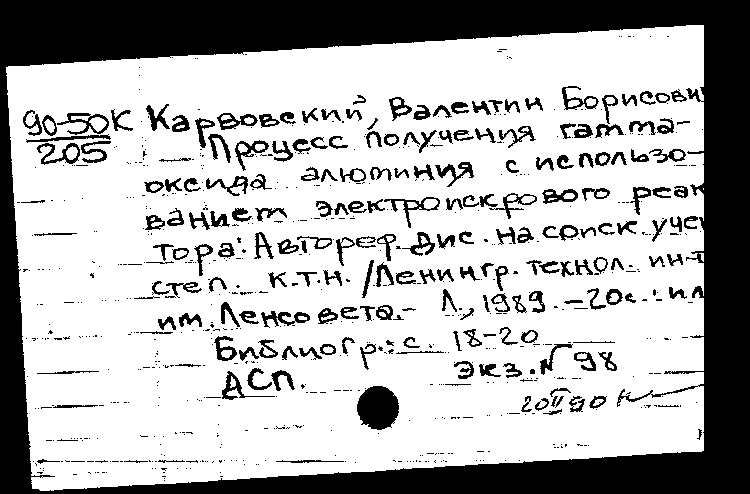 90-50К Карвовский, Валентин Борисович
205 Процесс получения гамма-
оксида алюминия с использо-
ванием электроискрового реак
тора: Автореф. дис. на соиск. учен
степ. к.т.н. / Ленингр. технол. ин-т
им. Ленсовета. - Л., 1989. - 20с.: ил
Библиогр.: с. 18-20
ДСП. Экз. № 98
20 II 90